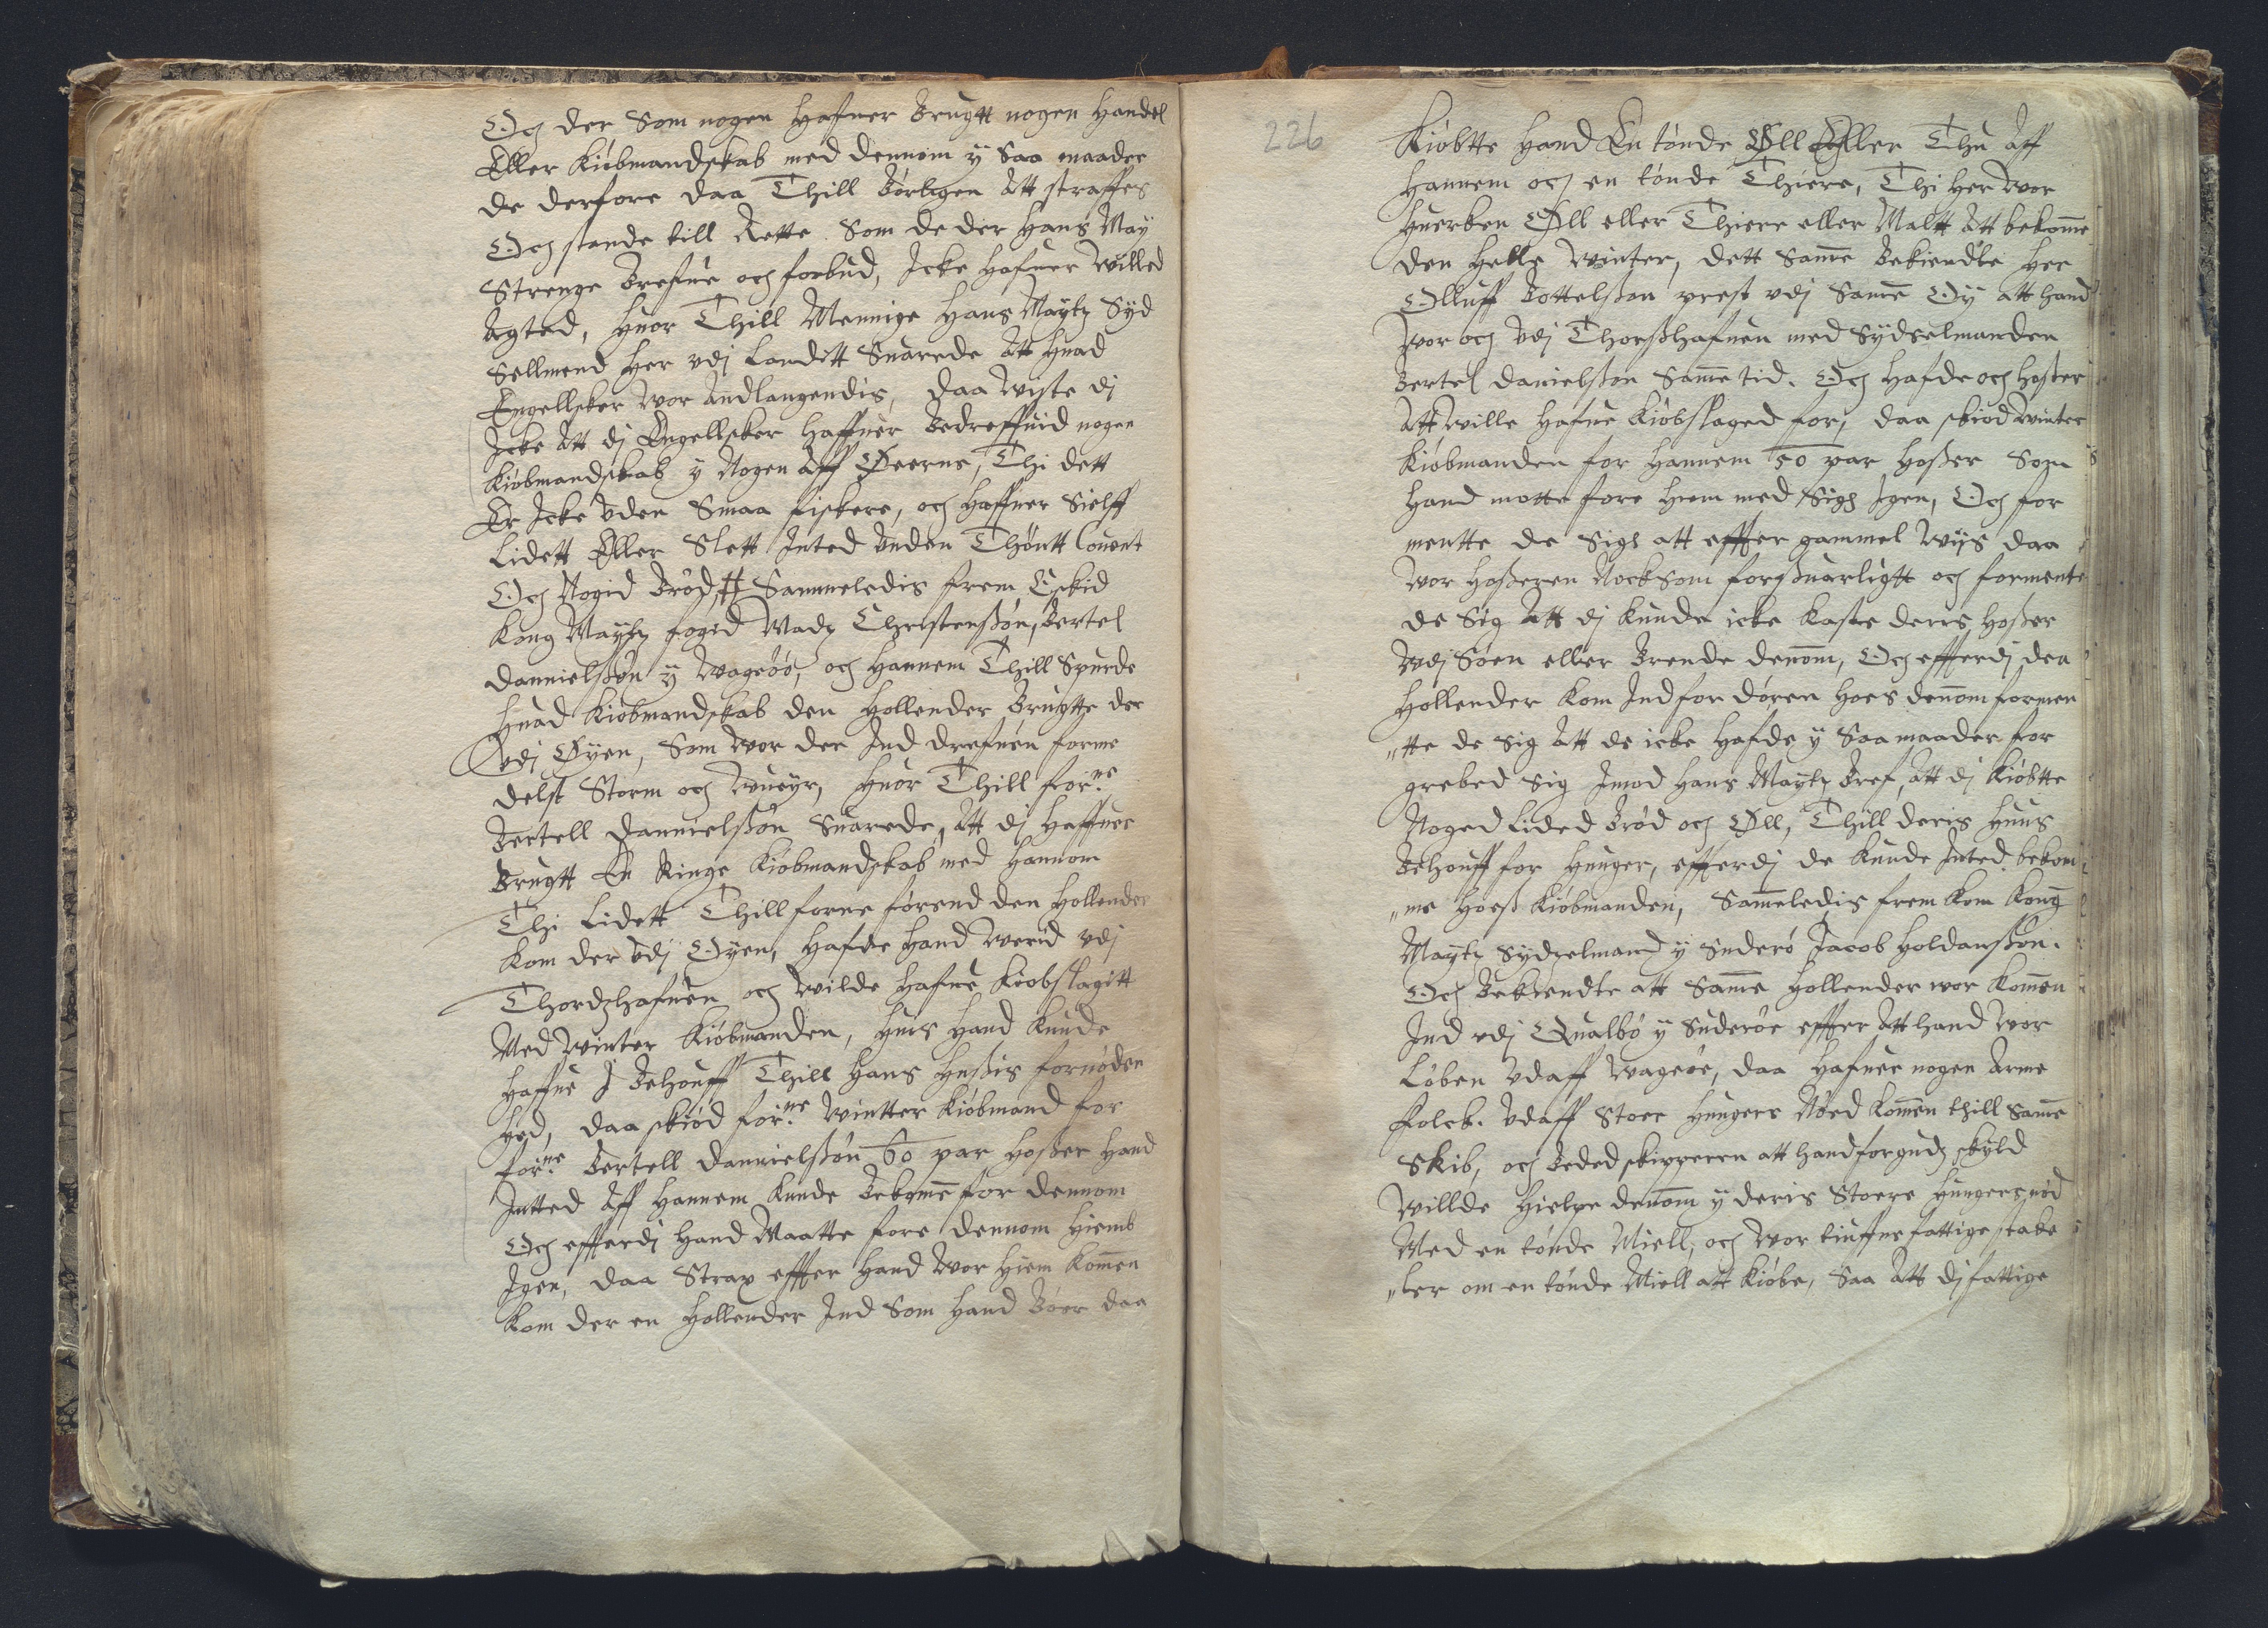 Och der Som nogen Hafuer Brugtt nogen Handel
Eller Kiøbmandskab med dennom y Saa maader
de derfore daa Thill Børligen Att straffes
Och stande till Rette Som de der Hans May
Strenge Brefue och forbud, Icke Hafuer Willed
Agted, Huor Thill Mennige Hans Maytz Syd
Sellmend Her vdj Landitt Suarede Att Huad
Engellsker Wor Andlangendis, daa Wiste dj
Icke Att dj Engellsker Haffuer Bedreffuid nogen
Kiøbmandskab y Nogen Aff Øeerne, Thi dett
Er Icke Vden Smaa fiskere, och Haffuer Sielff
Lidett Eller Slett Inted Vnden Thøntt Couent
Och Nogid Brød, # Sammeledis frem Eskid
Kong Maytz fogid Madz Christenssøn, Bertel
Dannielssøn y Wageøø, och Hannem Thill Spurde
Huad Kiøbmandskab den Hollender Brugtte der
vdj Øyen, Som Wor der Ind drefuen forme
delst Storm och Wueyr, Huor Thill forne
Bertell Dannielssøn Suarede, Att dj Haffuer
Brugtt En Ringe Kiøbmandskab med Hannom
Thi Lidett Thill forne førend den Hollender
Kom der vdj Øyen, Hafde Hand Werid vdj
Thordzhafuen och Wilde Hafue Kiøbslagitt
Med Winter Kiøbmanden, Huis Hand Kunde
Haffue I Behouff Thill Hans Hussis fornøden
hed, daa skiød forne Wintter Kiøbmand for
forne Bertell Dannielssøn 60 par Hosser Hand
Intted Aff Hannem Kunde Bekome for dennom
Och efferdj Hand Maatte fore dennom Hiemb
Igen, daa Strax effter Hand Wor Hiem Komen
Kom der en Hollender Ind Som Hand Boer daa
226
Kiøbtte Hand En tønde Øll Eller Thu Aff
Hannem och en tønde Thiere, Thi Her Wor
Huerken Øll eller Thiere eller Maltt Att bekome
den Helle Winter, dett Same Bekiendte Her
Olluff Bottelsson prest vdj Same Øy att hand
Wor och vdj Thorsshafuen med Sydselmanden
Bertel Danielsson Same tid. Och Hafde och Hoser
Att Wille Hafue Kiøbslaged for, daa skiød Winter
Kiøbmanden for Hannem 50 par Hosser Som
Hand motte føre Hiem med Sigh Igen, Och for
mentte de Sigh att effter gammel Wys daa
Wor Hosseren Nock Som forsuarligtt och formente
de Sig Att dj Kunde icke Kaste deris Hosser
Vdj Søen eller Brende denom, Och effterdj den
Hollender Kom Ind for døren Hoes denom formen
„tte de Sig Att de icke Hafde y Saa maader for
grebed Sig Imod Hans Maytz Bref, Att dj Kiøbtte
Noged Lided Brød och Øll, Thill deris Huus
Behouff for Hunger, effterdj de Kunde Inted bekom
„me Hoess Kiøbmanden, Sameledis frem Kom Kong
Maytz Sydzelmand y Suderø Jacob Holdanssøn.
Och Bekiendte att Same Hollender wor Komen
Ind vdj Qualbø y Suderøe effter Att hand Wor
Løben Vdaff Wageøe, daa Hafuer nogen Arme
folck. Vdaff Stoer Hungers Nøed Komen thill Same
Skib, och Beded skipperen att hand for gudz skyld
Willde Hielpe denom y deris Stoere Hungersnød
Med en tønde Miell, och Wor tiuffue fattige stake
„ler om en tønde Miell att Kiøbe, Saa Att dj fattige